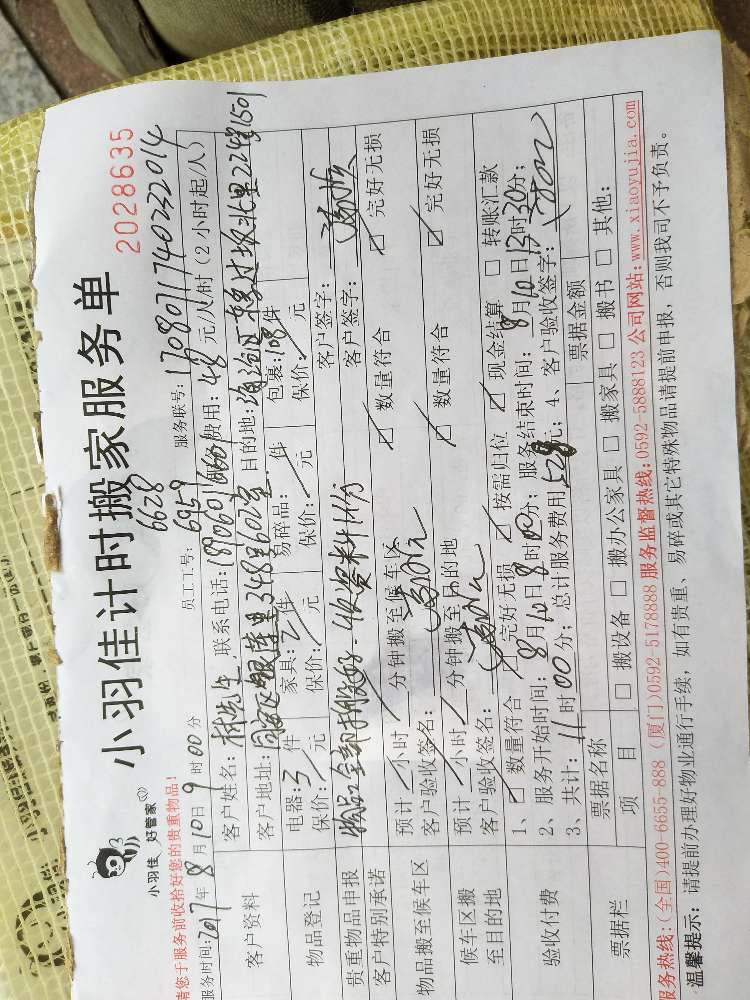 小羽佳计时搬家服务单
2028635
小羽佳 好管家
请您于服务前收拾好您的贵重物品!
员工工号: 6628 6959
服务联号: 1708071740232014
服务时间: 2017年8月10日9时00分
服务费用: 48元/人/时 (2小时起/人)
客户资料
客户姓名: 林先生 联系电话:
客户地址: 348#602室 目的地: 海沧区 北里224#1501
物品登记
电器: 3件 家具: 2件 易碎品: / 件 包裹: 108件
保价: / 元 保价: / 元 保价: / 元 保价: / 元
贵重物品申报
客户签字:
客户特别承诺
物品全部搬好. 收资料1份
客户签字:
物品搬至候车区
预计 / 小时 / 分钟搬至候车区 ☑ 数量符合 ☑ 完好无损
客户验收签名:
候车区搬至目的地
预计 / 小时 / 分钟搬至目的地 ☑ 数量符合 ☑ 完好无损
客户验收签名:
验收付费
1、☑ 数量符合 ☑ 完好无损 ☑ 按需归位 ☑ 现金结算 □ 转账汇款
2、服务开始时间: 8月10日8时00分; 服务结束时间: 8月10日13时30分;
3、共计: 11时00分; 总计服务费用: 528元; 4、客户验收签字:
票据栏
票据名称 票据金额
项目 □ 搬设备 □ 搬办公家具 □ 搬家具 □ 搬书 □ 其他:
服务热线: (全国)400-6655-888 (厦门)0592-5178888 服务监督热线: 0592-5888123 公司网站: www.xiaoyujia.com
温馨提示: 请提前办理好物业通行手续, 如有贵重、易碎或其它特殊物品请提前申报, 否则我司不予负责。